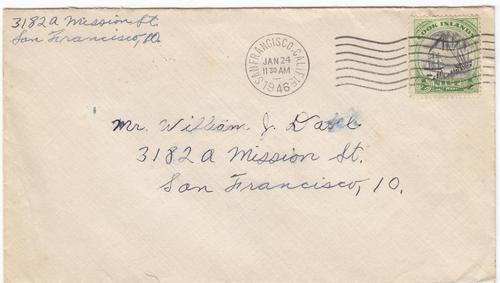 3182 A Mission St.
San Francisco, 10.
SAN FRANCISCO, CALIF.
JAN 24
11 30 AM
1946
COOK ISLANDS
Mr. William J.
3182 A Mission St.
San Francisco, 10.